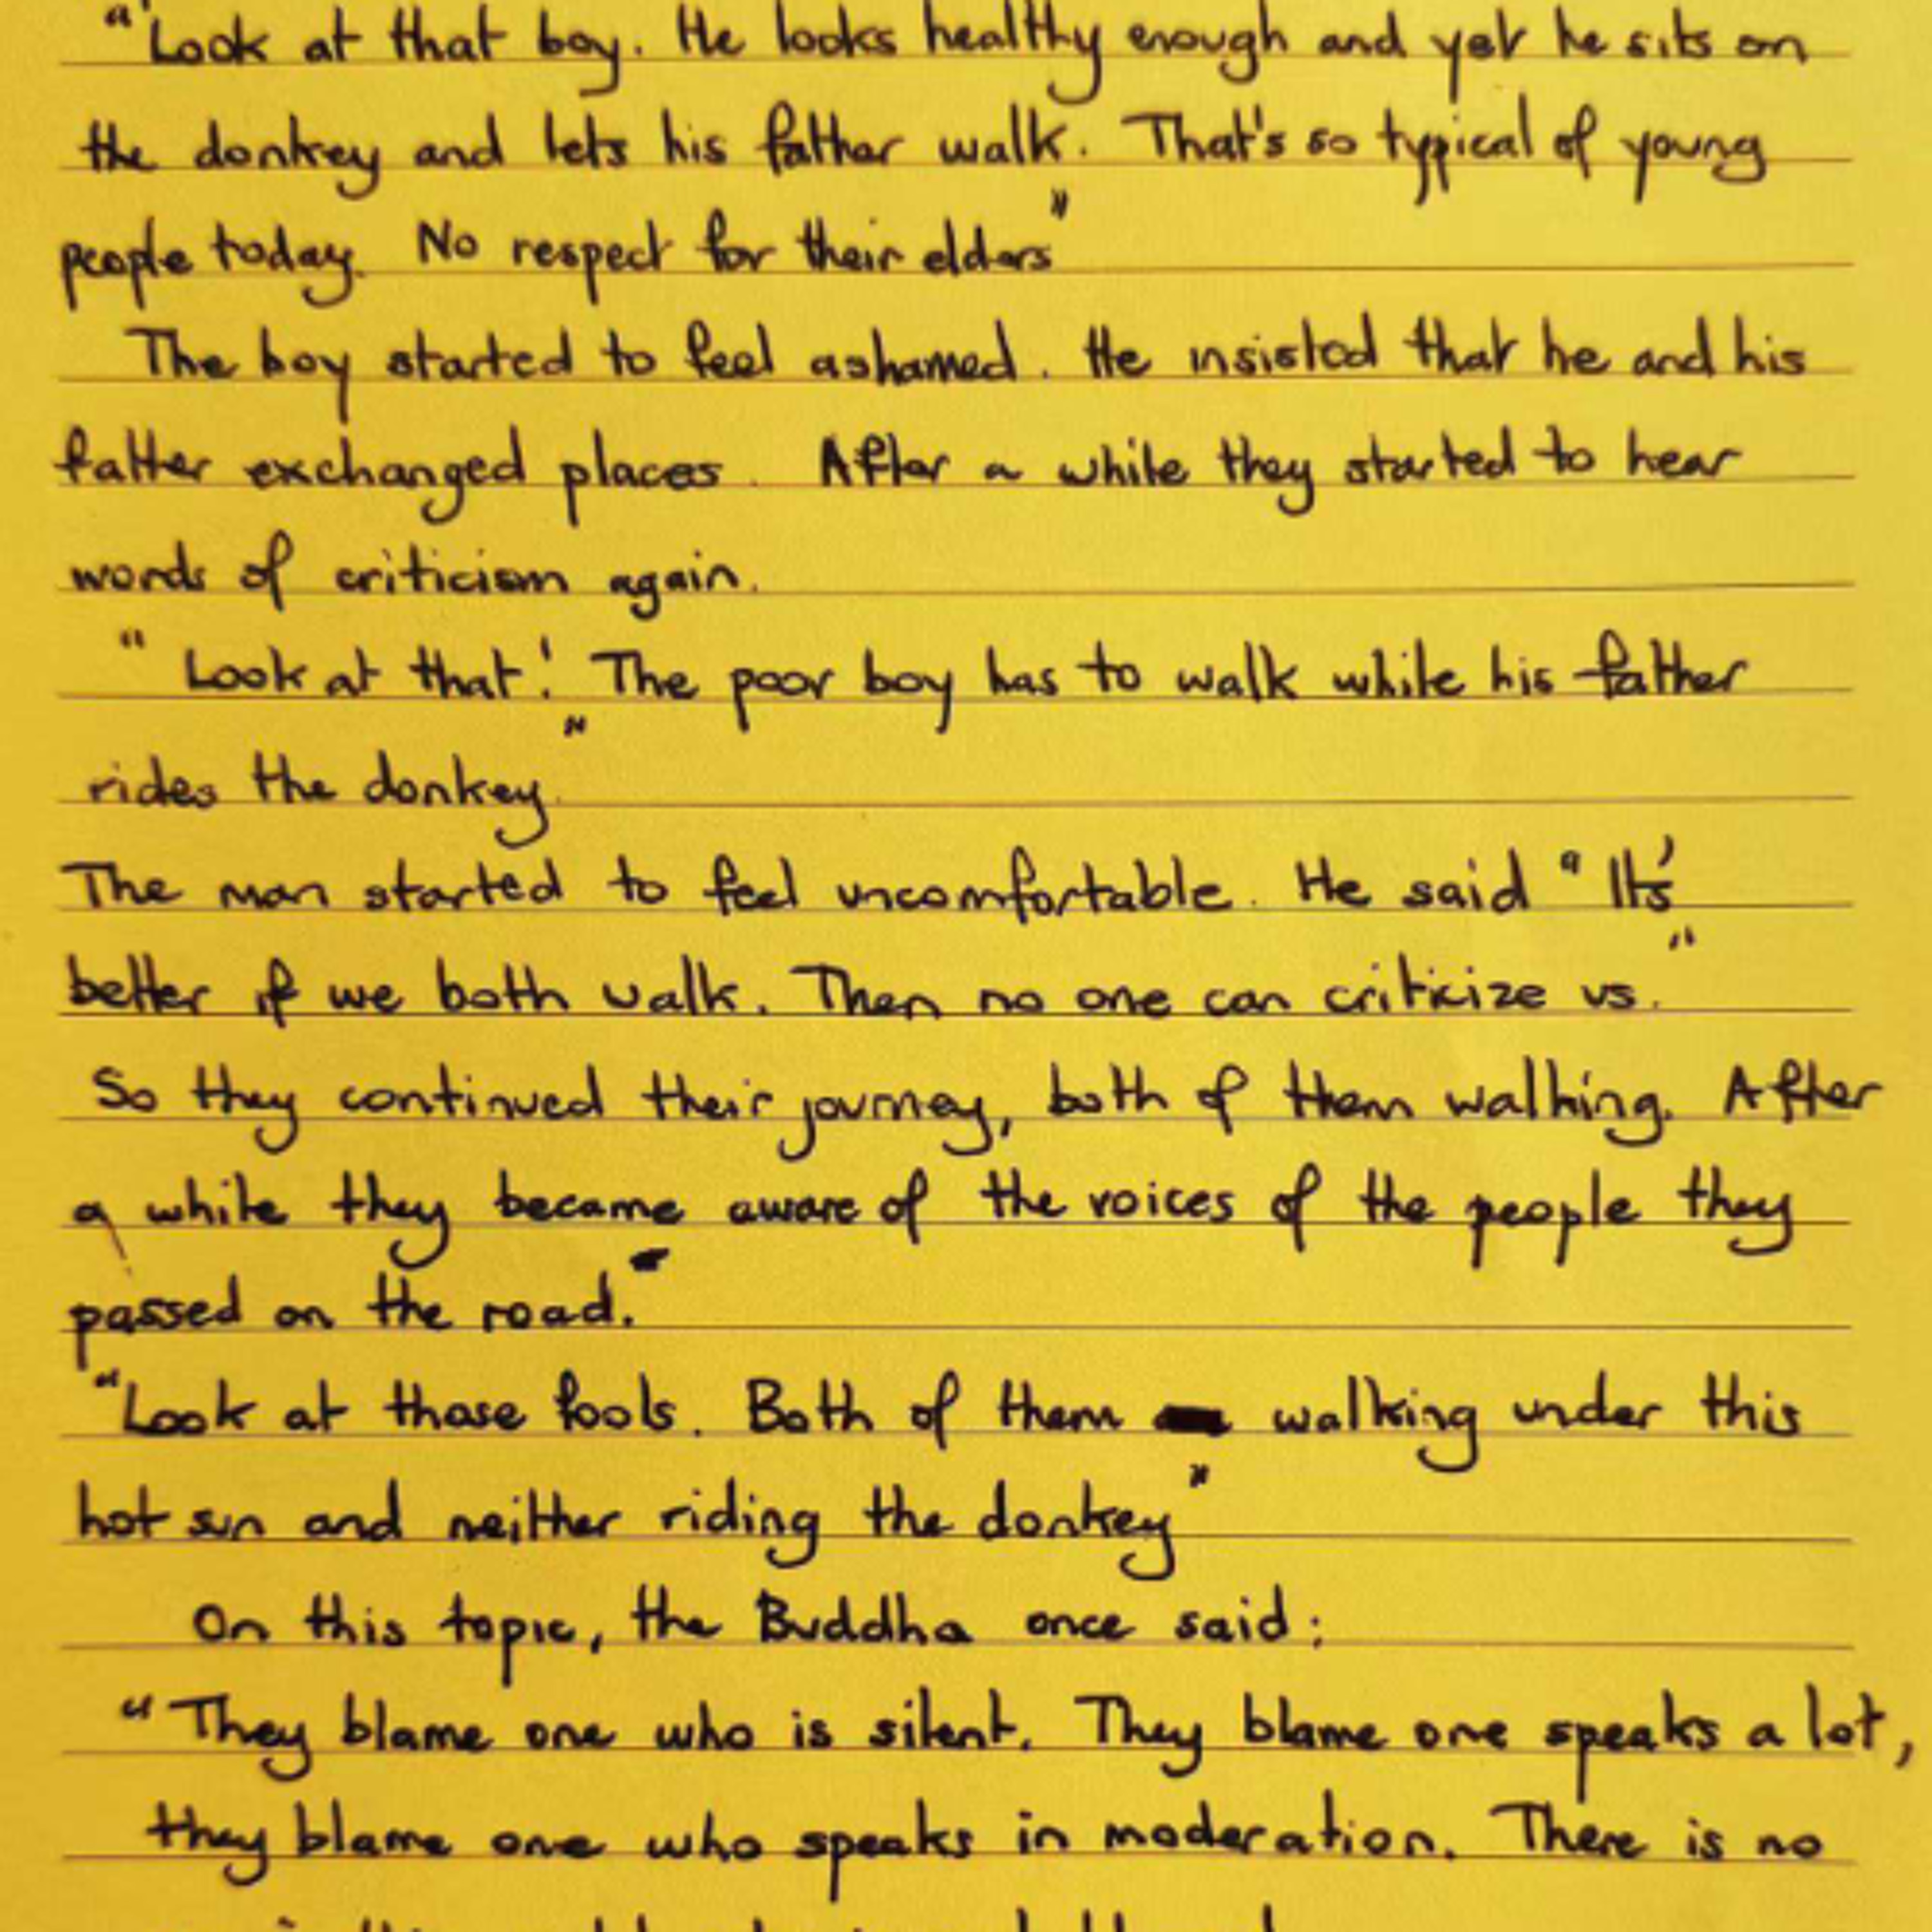 "Look at that boy. He looks healthy enough and yet he sits on
the donkey and lets his father walk. That's so typical of young
people today. No respect for their elders"
The boy started to feel ashamed. He insisted that he and his
father exchanged places. After a while they started to hear
words of criticism again.
"Look at that! The poor boy has to walk while his father
rides the donkey."
The man started to feel uncomfortable. He said "It's
better if we both walk. Then no one can criticize us."
So they continued their journey, both of them walking. After
a while they became aware of the voices of the people they
passed on the road.
"Look at those fools. Both of them walking under this
hot sun and neither riding the donkey"
On this topic, the Buddha once said:
"They blame one who is silent. They blame one speaks a lot,
they blame one who speaks in moderation. There is no